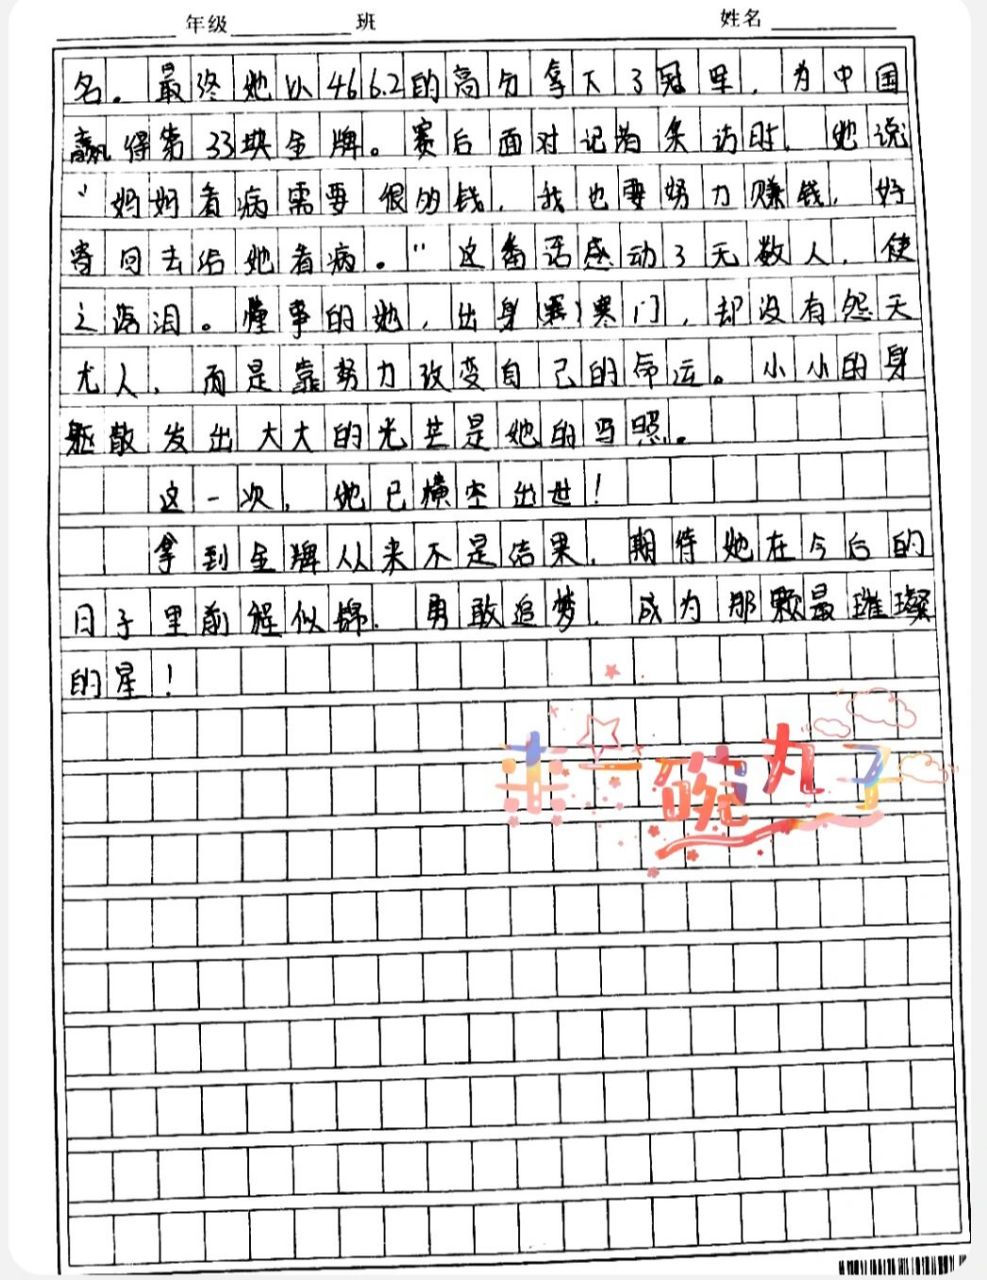 年级 班 姓名
名。最终她以466.2的高分拿下了冠军,为中国
赢得第33块金牌。赛后面对记者采访时,她说
“妈妈看病需要很多钱,我也要努力赚钱,好
寄回去给她看病。”这番话感动了无数人,使
之落泪。懂事的她,出身(寒)寒门,却没有怨天
尤人,而是靠努力改变自己的命运。小小的身
躯散发出大大的光芒是她的写照。
这一次,她已横空出世!
拿到金牌从来不是结果,期待她在今后的
日子里前程似锦,勇敢追梦,成为那颗最璀璨
的星!
来一碗丸子